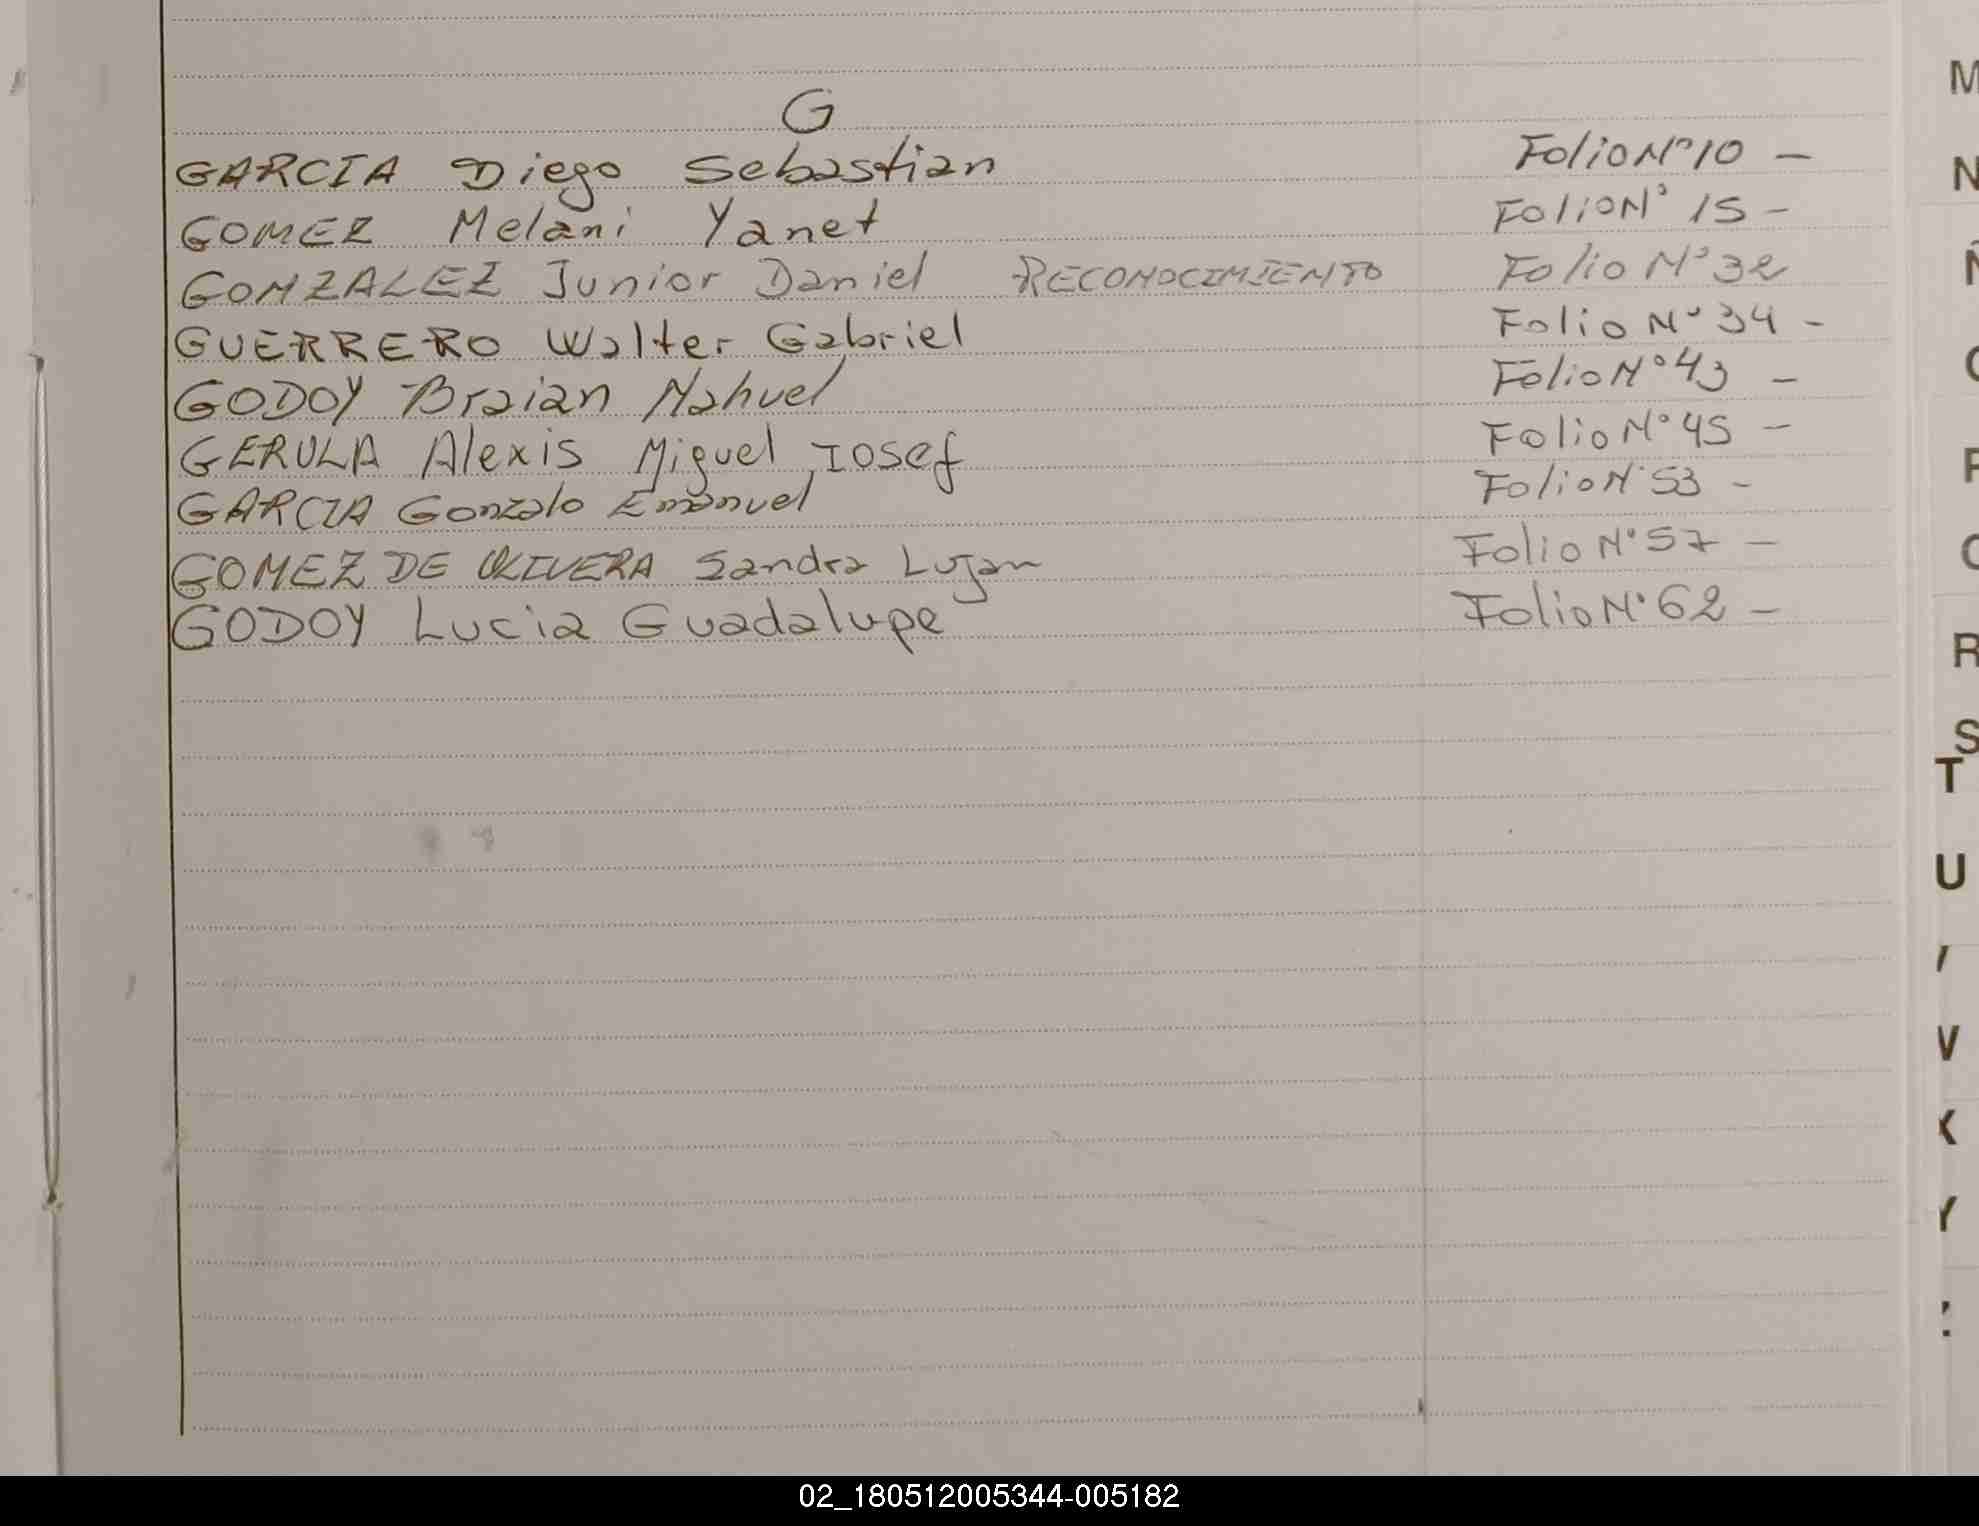 G
GARCIA Diego Sebastian Folio N° 10 -
GOMEZ Melani Yanet Folio N° 15 -
GONZALEZ Junior Daniel RECONOCIMIENTO Folio N° 32
GUERRERO Walter Gabriel Folio N° 34 -
GODOY Braian Nahuel Folio N° 43 -
GERULA Alexis Miguel Iosef Folio N° 45 -
GARCIA Gonzalo Emanuel Folio N° 53 -
GOMEZ DE OLIVERA Sandra Lujan Folio N° 57 -
GODOY Lucia Guadalupe Folio N° 62 -
M
N
Ñ
R
S
T
U
W
X
Y
Z
02_180512005344-005182